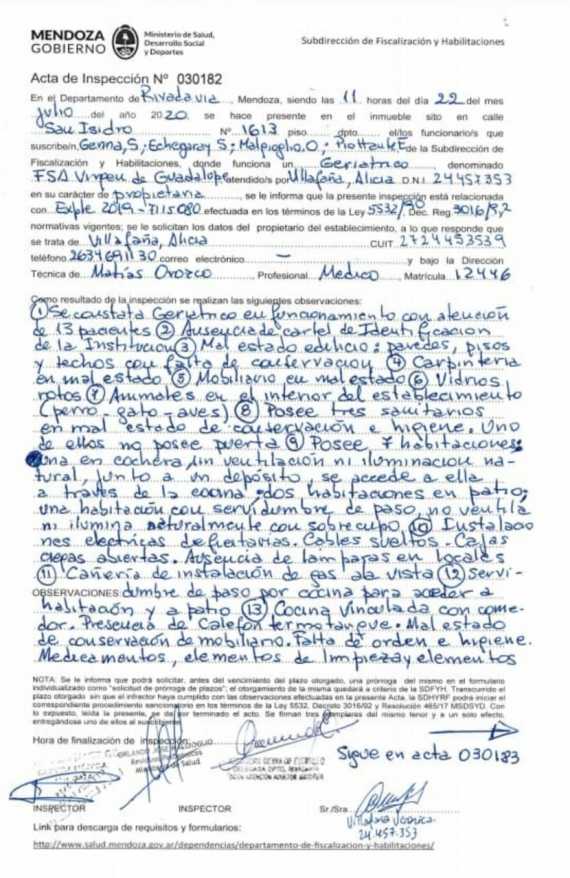 MENDOZA
GOBIERNO
Ministerio de Salud,
Desarrollo Social
y Deportes
Subdirección de Fiscalización y Habilitaciones
Acta de Inspección Nº 030182
En el Departamento de Rivadavia, Mendoza, siendo las 11 horas del día 22 del mes
julio del año 2020 se hace presente en el inmueble sito en calle
San Isidro Nº 1613 piso dpto. el/los funcionario/s que
suscribe/n, Genna, S; Echegaray S; Malpoglio, O; de la Subdirección de
Fiscalización y Habilitaciones, donde funciona un Geriatrico denominado
FSA Virgen de Guadalupe atendido/s por Villafaña, Alicia D.N.I. 24457353
en su carácter de propietaria, se le informa que la presente inspección está relacionada
con Expte 2019-7115080 efectuada en los términos de la Ley 5532/90 Dec. Reg 3016/92
normativas vigentes; se le solicitan los datos del propietario del establecimiento, a lo que responde que
se trata de Villafaña, Alicia CUIT 2724453539
teléfono 2634691130 correo electrónico — y bajo la Dirección
Técnica de Matías Orozco, Profesional Medico, Matrícula 12446
Como resultado de la inspección se realizan las siguientes observaciones:
① Se constata Geriatrico en funcionamiento con atención
de 13 pacientes ② Ausencia de cartel de Identificacion
de la Institucion ③ Mal estado edilicio: paredes, pisos
y techos con falta de conservacion ④ Carpinteria
en mal estado ⑤ Mobiliario en mal estado ⑥ Vidrios
rotos ⑦ Animales en el interior del establecimiento
(perro - gato - aves) ⑧ Posee tres sanitarios
en mal estado de conservación e higiene. Uno
de ellos no posee puerta ⑨ Posee 7 habitaciones:
una en cochera sin ventilación ni iluminacion na-
tural, junto a un depósito, se accede a ella
a través de la cocina; dos habitaciones en patio;
una habitación con servidumbre de paso, no ventila
ni ilumina naturalmente con sobrecupo ⑩ Instalacio
nes electricas deficitarias. Cables sueltos - Cajas
ciegas abiertas. Ausencia de lamparas en locales
⑪ Cañería de instalación de gas a la vista ⑫ Servi-
OBSERVACIONES: dumbre de paso por cocina para acceder a
habitación y a patio ⑬ Cocina vinculada con come-
dor. Presencia de Calefon termotanque. Mal estado
de conservación de mobiliario. Falta de orden e higiene.
Medicamentos, elementos de limpieza y elementos
NOTA: Se le informa que podrá solicitar, antes del vencimiento del plazo otorgado, una prórroga del mismo en el formulario
individualizado como "solicitud de prórroga de plazos"; el otorgamiento de la misma quedará a criterio de la SDFYH. Transcurrido el
plazo otorgado sin que el infractor haya cumplido con las observaciones efectuadas en la presente Acta, la SDHYRF podrá iniciar el
correspondiente procedimiento sancionatorio en los términos de la Ley 5532, Decreto 3016/92 y Resolución 465/17 MSDSYD. Con
lo expuesto, leída la presente, se da por terminado el acto. Se firman tres ejemplares del mismo tenor y a un solo efecto,
entregándose uno de ellos al suscribiente.
Hora de finalización de inspección:
Sigue en acta 030183
INSPECTOR
INSPECTOR
Sr./Sra.
Villafaña Veronica
24.457.353
Link para descarga de requisitos y formularios:
http://www.salud.mendoza.gov.ar/dependencias/departamento-de-fiscalizacion-y-habilitaciones/